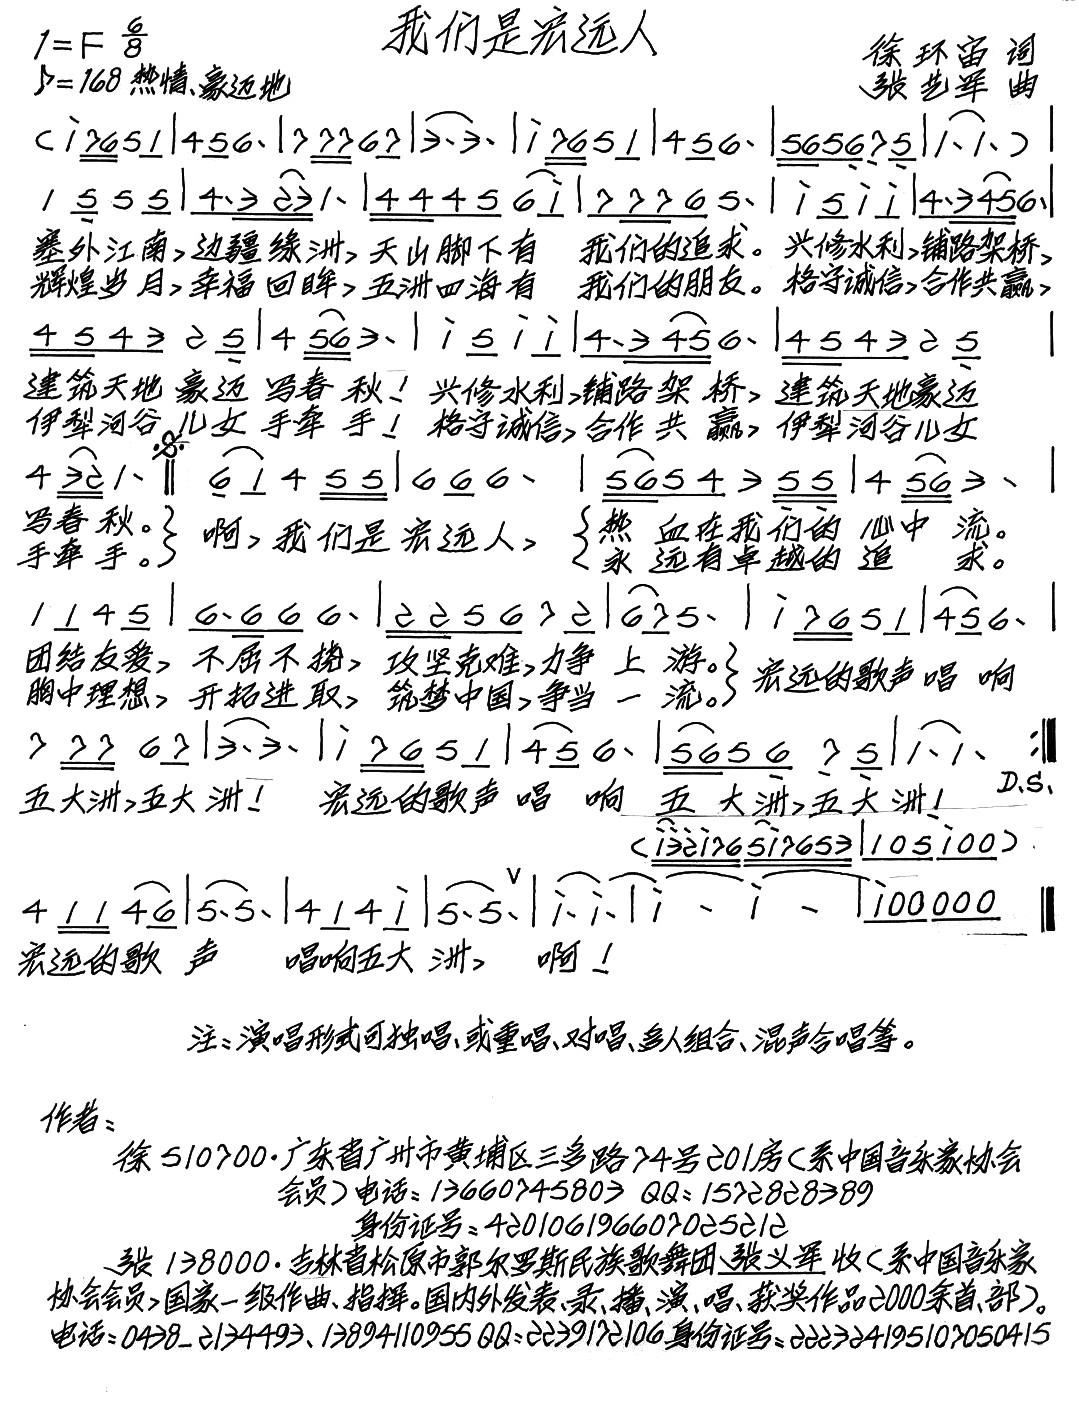 我们是宏远人
1=F 6/8
♪=168 热情、豪迈地
徐环宙 词
张艺军 曲
(i 7651|456·|777767|3·3·|i 7651|456·|565675|1·1·)|
1 5 5 5|4·3 231·|4445 6i|777 65·|i5ii|4·3456·|
塞外江南,边疆绿洲,天山脚下有 我们的追求。兴修水利,铺路架桥,
辉煌岁月,幸福回眸,五洲四海有 我们的朋友。格守诚信,合作共赢,
4543 25|4563·|i5ii|4·3456·|454325|
建筑天地豪迈写春秋!兴修水利,铺路架桥,建筑天地豪迈
伊犁河谷儿女手牵手!格守诚信,合作共赢,伊犁河谷儿女
4321·‖614 55|666·|5654 3 55|4563·|
写春秋。 啊,我们是宏远人, 热血在我们的心中流。
手牵手。 永远有卓越的追求。
1145|6·666·|225672|675·|i 7651|456·|
团结友爱,不屈不挠,攻坚克难,力争上游。 宏远的歌声唱响
胸中理想,开拓进取,筑梦中国,争当一流。
777 67|3·3·|i 7651|456·|5656 75|1·1·:‖
五大洲,五大洲! 宏远的歌声唱响五大洲,五大洲!
D.S.
(i32i76 5i7653|105i00)
41146|5·5·|414i|5·5·∨|i·i·|i·i·|i00000‖
宏远的歌声 唱响五大洲, 啊!
注:演唱形式可独唱、或重唱、对唱、多人组合、混声合唱等。
作者:
徐510700·广东省广州市黄埔区三多路74号201房(系中国音乐家协会
会员)电话:13660745803 QQ:1572828389
身份证号:420106196607025212
张138000·吉林省松原市郭尔罗斯民族歌舞团张义军收(系中国音乐家
协会会员,国家一级作曲、指挥。国内外发表、录、播、演、唱、获奖作品2000余首、部)。
电话:0438-2134493、13894110955 QQ:2239172106身份证号:222324195107050415